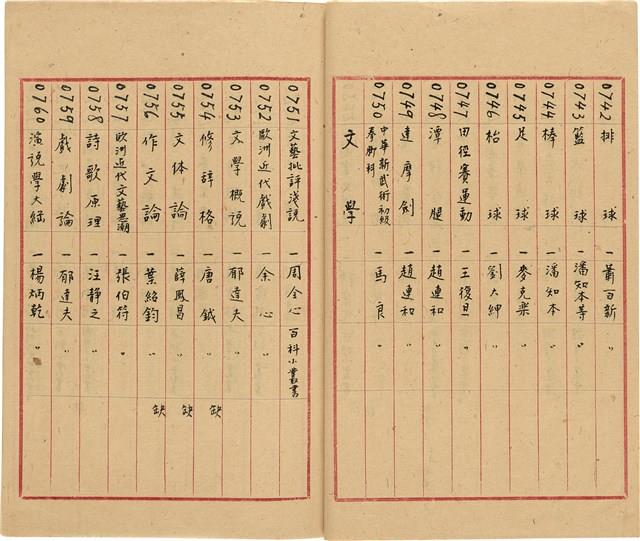 0742 排球 一 蕭百新 〃
0743 籃球 一 潘知本等 〃
0744 棒球 一 潘知本 〃
0745 足球 一 麥克樂 〃
0746 枱球 一 劉大紳 〃
0747 田徑賽運動 一 王復旦 〃
0748 潭腿 一 趙連和 〃
0749 達摩劍 一 趙連和 〃
0750 中華新武術初級拳脚科 一 馬良 〃
文學
0751 文藝批評淺說 一 周全平 百科小叢書
0752 歐洲近代戲劇 一 余心 〃
0753 文學概說 一 郁達夫 〃
0754 修辭格 一 唐鉞 〃 缺
0755 文體論 一 薛鳳昌 〃 缺
0756 作文論 一 葉紹鈞 〃 缺
0757 歐洲近代文藝思潮 一 張伯符 〃
0758 詩歌原理 一 汪靜之 〃
0759 戲劇論 一 郁達夫 〃
0760 演說學大綱 一 楊炳乾 〃